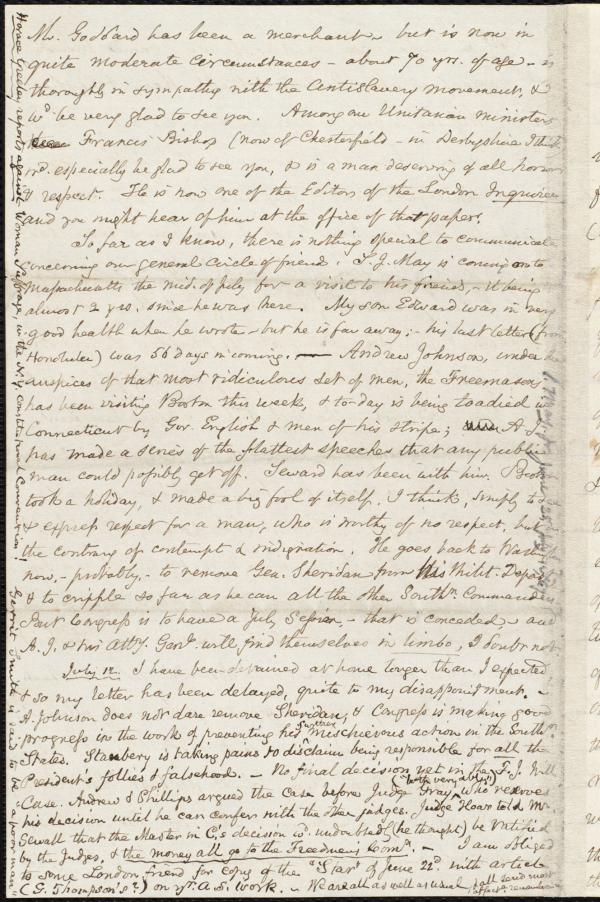 Mr. Goddard has been a merchant - but is now in
quite moderate circumstances - about 70 yrs. of age - is
thoroughly in sympathy with the Antislavery movement, &
wd. be very glad to see you. Among our Unitarian ministers
Francis Bishop (now of Chesterfield - in Derbyshire I think
wd. especially be glad to see you, & is a man deserving of all honor
& respect. He is now one of the Editors of the London Inquirer
and you might hear of him at the office of that paper.
So far as I know, there is nothing special to communicate
concerning our general circle of friends. S. J. May is coming on to
Massachusetts the mid. of July for a visit to his friends, - it being
almost 2 yrs. since he was here. My son Edward was in very
good health when he wrote - but he is far away; - his last letter (from
Honolulu) was 56 days in coming. — Andrew Johnson, under the
auspices of that most ridiculous set of men, the Freemasons,
has been visiting Boston this week, & to-day is being toadied in
Connecticut by Gov. English & men of his stripe; A. J.
has made a series of the flattest speeches that any public
man could possibly get off. Seward has been with him. Boston
took a holiday, & made a big fool of itself, I think, simply to
& express respect for a man, who is worthy of no respect, but
the contrary of contempt & indignation. He goes back to Wash.
now, - probably, - to remove Gen. Sheridan from his Milit. Depart.
& to cripple so far as he can all the other Southn. Commanders
But Congress is to have a July Session, - that is conceded, - and
A. J. & his Atty. Genl. will find themselves in limbo, I doubt not.
July 12. I have been detained at home longer than I expected,
& so my letter has been delayed, quite to my disappointment. -
A. Johnson does not dare remove Sheridan, & Congress is making good
progress in the work of preventing his further mischievous action in the Southn.
States. Stanbery is taking pains to disclaim being responsible for all the
President's follies & falsehood. - No final decision yet in the F. J. Will
Case. Andrew & Phillips argued the case (both very ably) before Judge Gray, who reserves
his decision until he can confer with the other judges. Judge Hoar told Mr.
Sewall that the Master in C's decision wd. undoubtedly (he thought) be ratified
by the Judges, & the money all go to the Freedmen's Comn. - I am obliged
to some London friend for copy of the "Star" of June 22d. with article
(G. Thompson's?) on yr. A. S. work. - We are all as well as usual, & all send most
affect. remembrance
Horace Greeley reports against Woman Suffrage, in the N.Y. Constitutional Convention!
Gerrit Smith is said to be "a poor man"